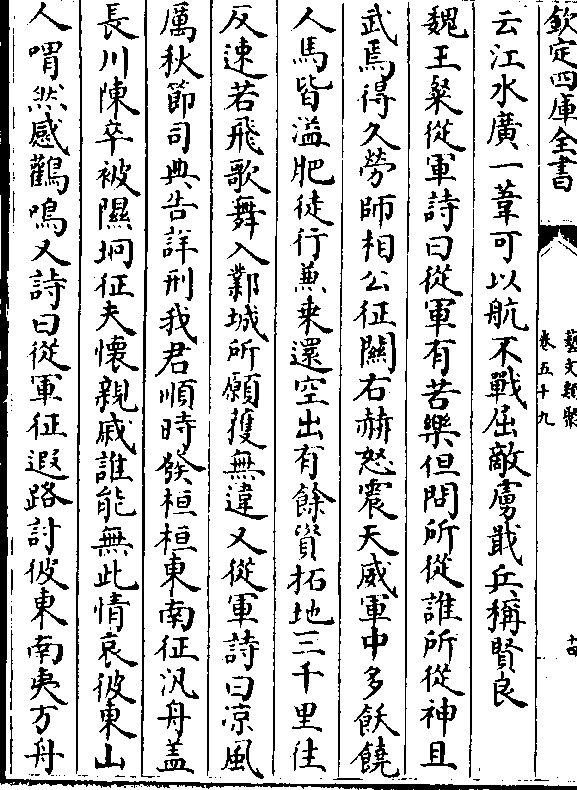 欽定四庫全書
藝文類聚
卷五十九
十四
云江水廣一葦可以航不戰屈敵虜戢兵稱賢良
魏王粲從軍詩曰從軍有苦樂但問所從誰所從神且
武焉得久勞師相公征關右赫怒震天威軍中多飫饒
人馬皆溢肥徒行兼乗還空出有餘資拓地三千里往
反速若飛歌舞入鄴城所願獲無違又從軍詩曰凉風
厲秋節司典告詳刑我君順時發桓桓東南征汎舟蓋
長川陳卒被隰坰征夫懷親戚誰能無此情哀彼東山
人喟然感鸛鳴又詩曰從軍征遐路討彼東南夷方舟